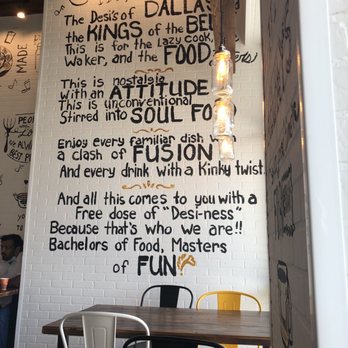 The Desi's of DALLAS
the KINGS of the BEL
This is for the lazy cook,
Waker, and the FOOD
This is nostalgia
With an ATTITUDE
This is unconventional
Stirred into SOUL FO
Enjoy every familiar dish w
a clash of FUSION
And every drink with a Kinky twist.
And all this comes to you with a
Free dose of "Desi-ness"
Because that's who we are!!
Bachelors of Food, Masters
of FUN
MADE
PEOP